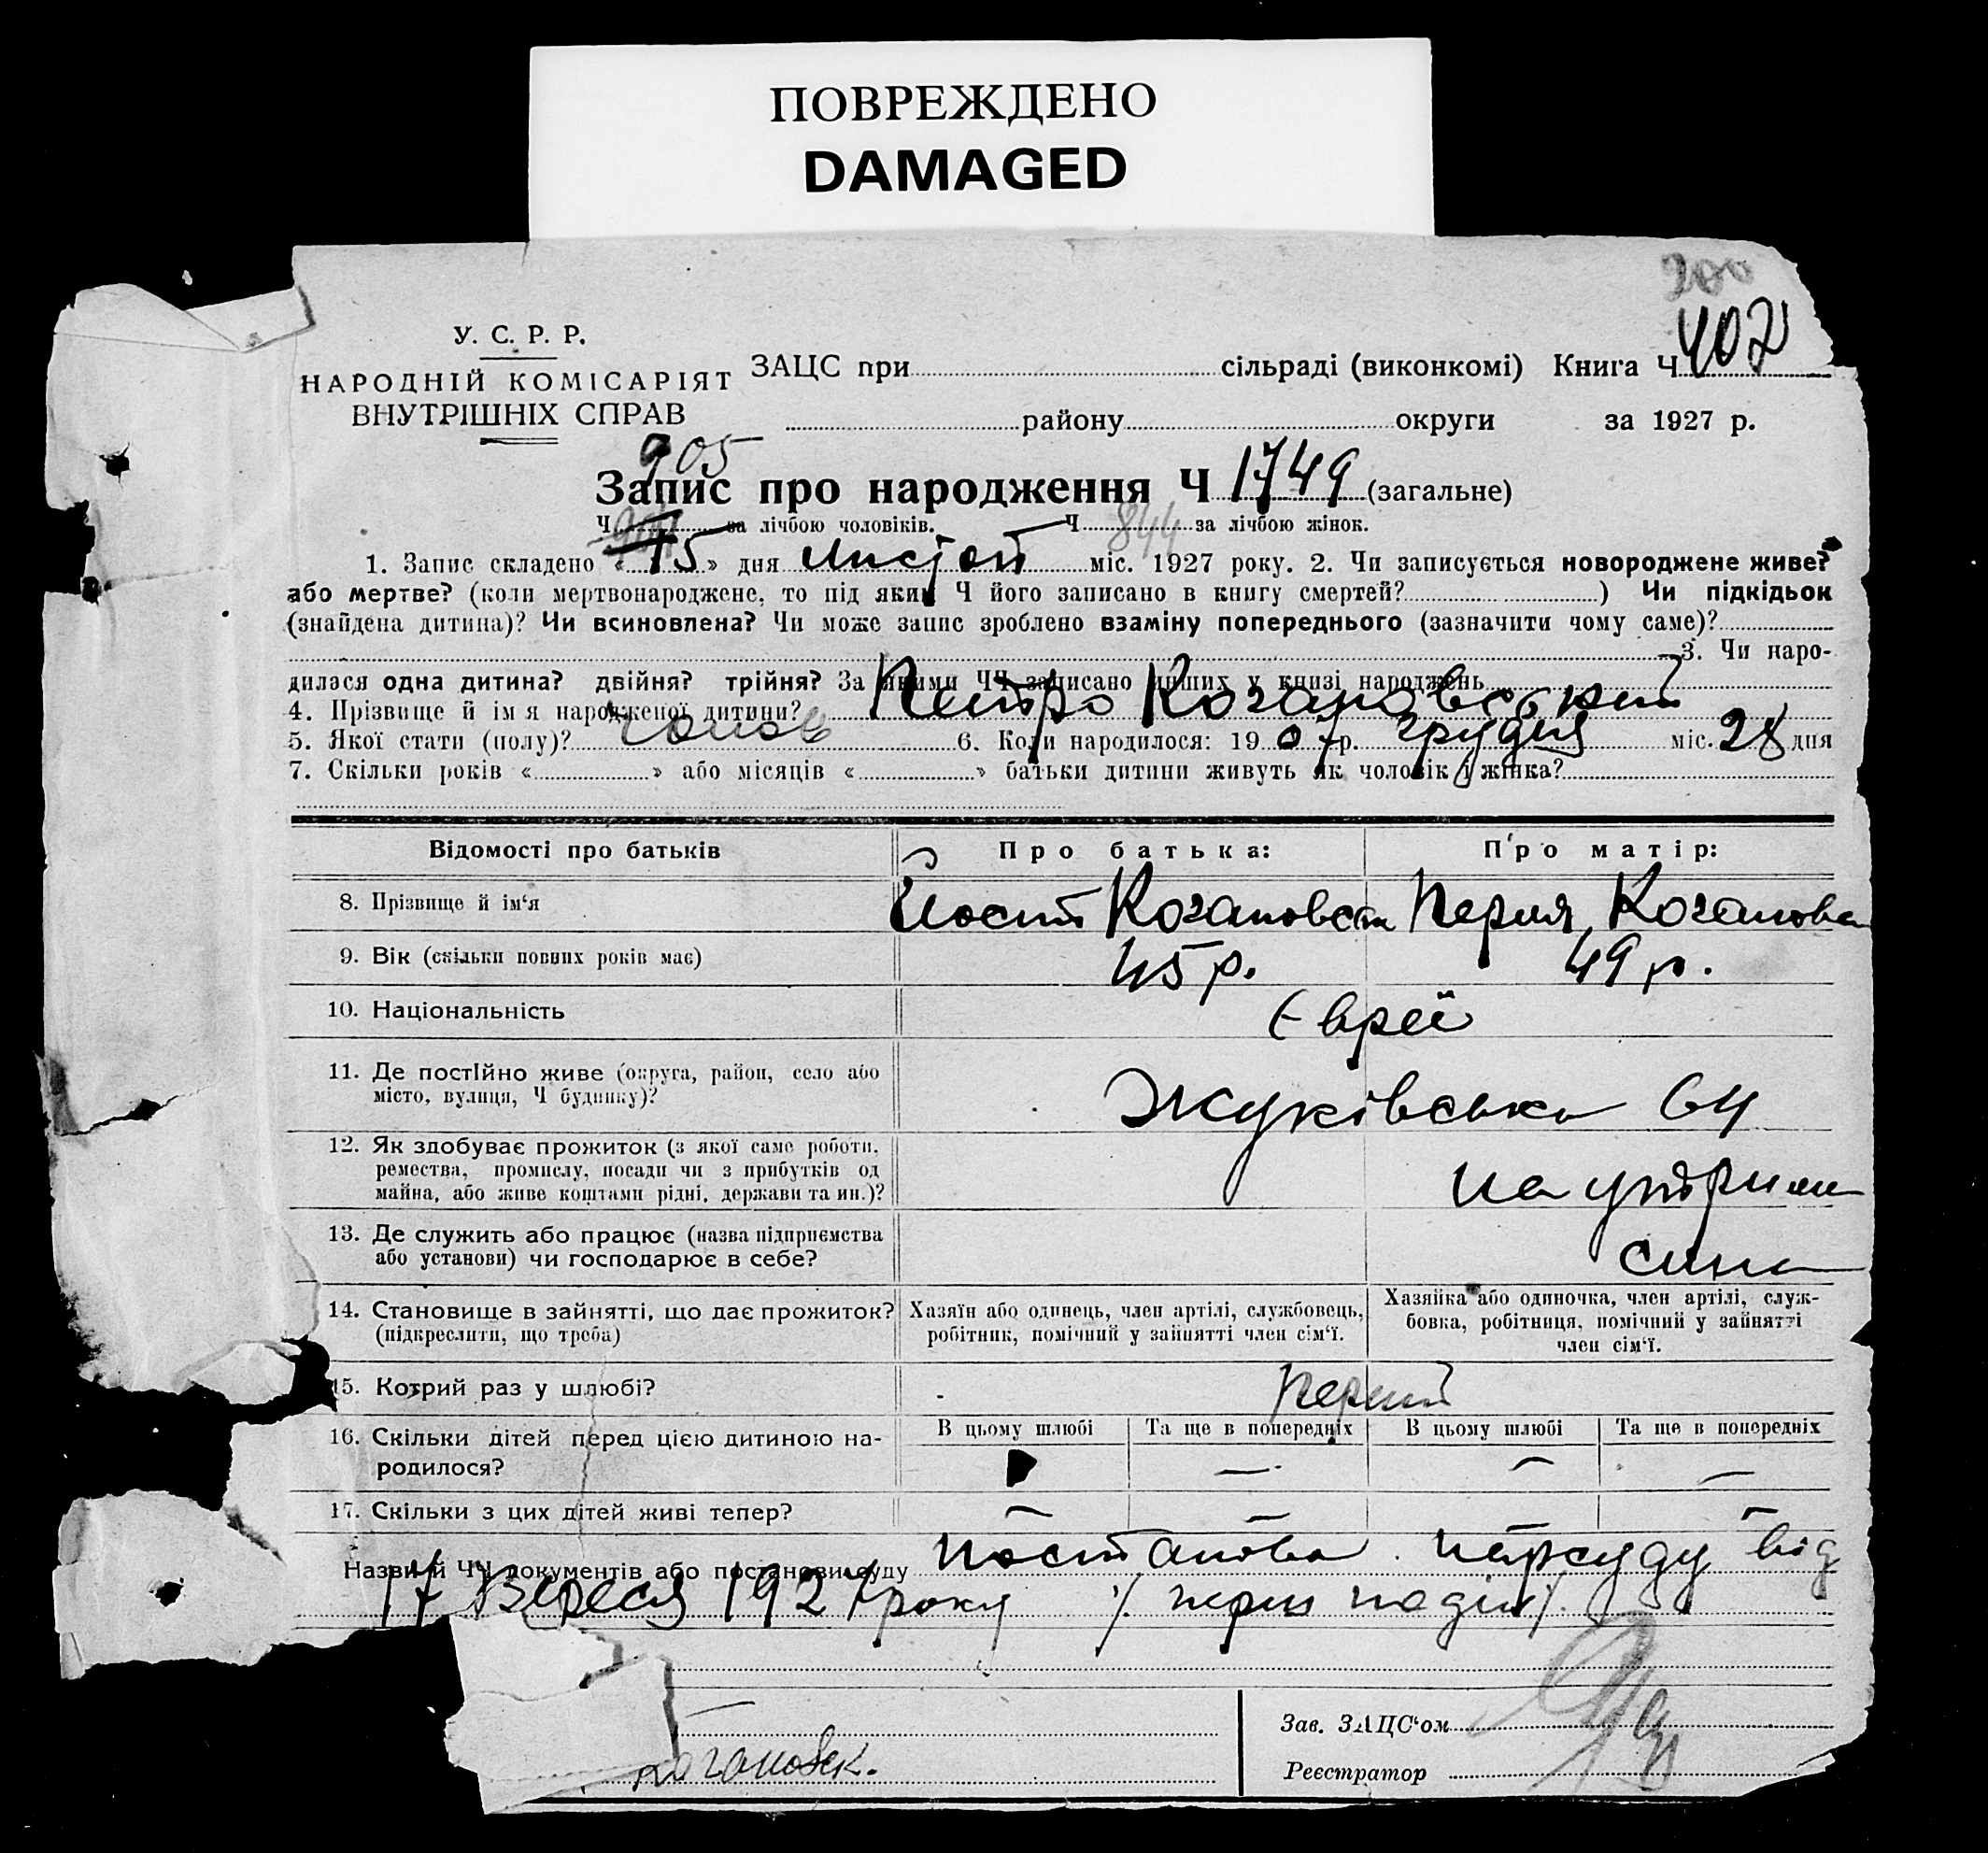 ПОВРЕЖДЕНО
DAMAGED
200
402
У. С. Р. Р.
НАРОДНІЙ КОМІСАРІЯТ
ВНУТРІШНІХ СПРАВ
ЗАЦС при сільраді (виконкомі) Книга Ч
району округи за 1927 р.
905
Запис про народження Ч 1749 (загальне)
Ч за лічбою чоловіків. Ч 844 за лічбою жінок.
1. Запис складено « 15 » дня Листоп міс. 1927 року. 2. Чи записується новороджене живе?
або мертве? (коли мертвонароджене, то під яким Ч його записано в книгу смертей? ) Чи підкідьок
(знайдена дитина)? Чи всиновлена? Чи може запис зроблено взаміну попереднього (зазначити чому саме)?
3. Чи наро-
дилася одна дитина? двійня? трійня? За якими ЧЧ записано инших у книзі народжень
4. Прізвище й ім я народженої дитини? Петро Когановський
5. Якої стати (полу)? чолов 6. Коли народилося: 19 07 р. грудня міс. 28 дня
7. Скільки років « » або місяців « » батьки дитини живуть як чоловік і жінка?
Відомості про батьків Про батька: Про матір:
8. Прізвище й ім‘я Йосип Когановськ Перля Коганова
9. Вік (скільки повних років має) 45 р. 49 р.
10. Національність Євреї
11. Де постійно живе (округа, район, село або
місто, вулиця, Ч будинку)?
Жуківська 64
12. Як здобуває прожиток (з якої саме роботи,
ремества, промислу, посади чи з прибутків од
майна, або живе коштами рідні, держави та ин.)?
на утрим
13. Де служить або працює (назва підприємства
або установи) чи господарює в себе?
сина
14. Становище в зайнятті, що дає прожиток?
(підкреслити, що треба)
Хазяїн або одинець, член артілі, службовець,
робітник, помічний у зайнятті член сім‘ї.
Хазяйка або одиночка, член артілі, служ-
бовка, робітниця, помічний у зайнятті
член сім‘ї.
15. Котрий раз у шлюбі? перший
16. Скільки дітей перед цією дитиною на-
родилося?
В цьому шлюбі Та ще в попередніх В цьому шлюбі Та ще в попередніх
17. Скільки з цих дітей живі тепер?
Назви й ЧЧ документів або постанови суду постанова нарсуду від
17 Вересня 1927 року
Зав. ЗАЦС‘ом
Когановск.
Реєстратор